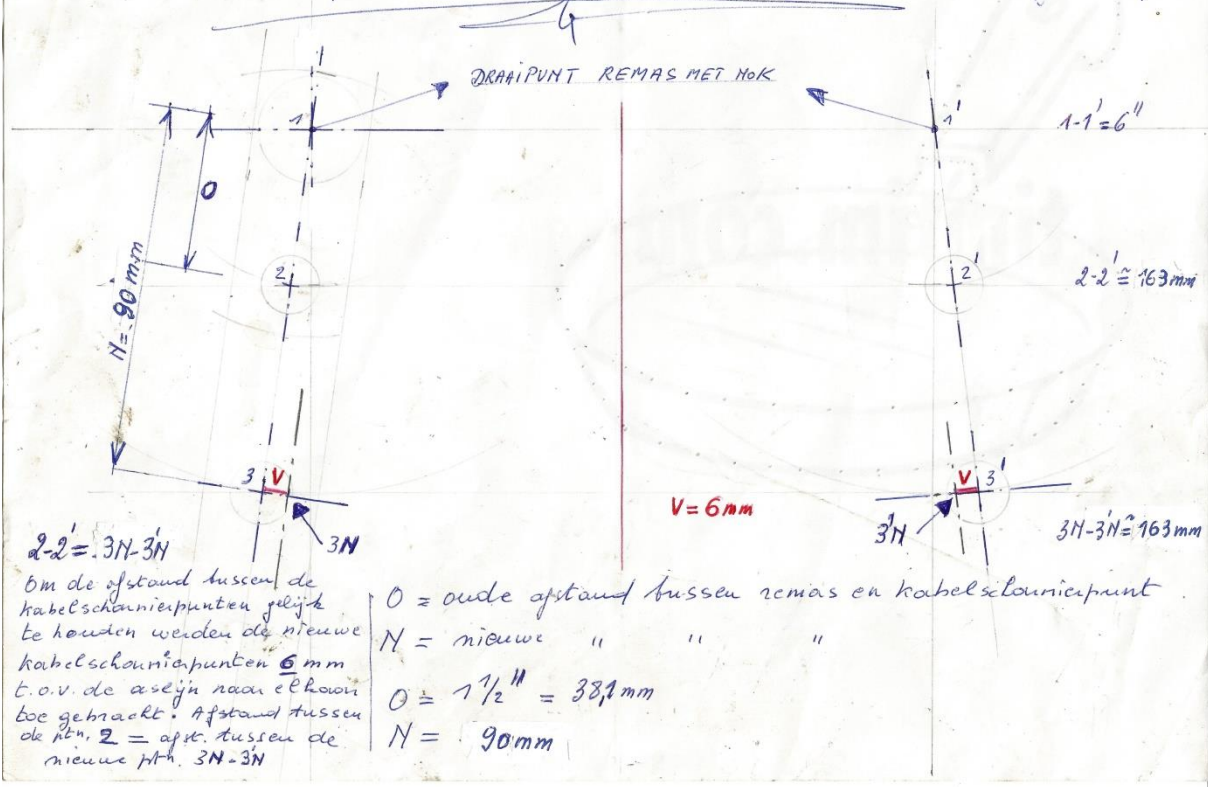 DRAAIPUNT REMAS MET NOK
1
1'
1-1' = 6"
O
2
2'
2-2' ≅ 163mm
N = 90 m.m
3
V
V
3'
V = 6mm
3N
3'N
3N-3'N ≅ 163mm
2-2' = 3N-3'N
Om de afstand tussen de
kabelscharnierpunten gelijk
te houden werden de nieuwe
kabelscharnierpunten 6 mm
t.o.v. de aslijn naar elkaar
toe gebracht. Afstand tussen
de ptn. 2 = afst. tussen de
nieuwe ptn. 3N-3'N
O = oude afstand tussen remas en kabelscharnierpunt.
N = nieuwe " " "
O = 1 1/2" = 38,1mm
N = 90mm